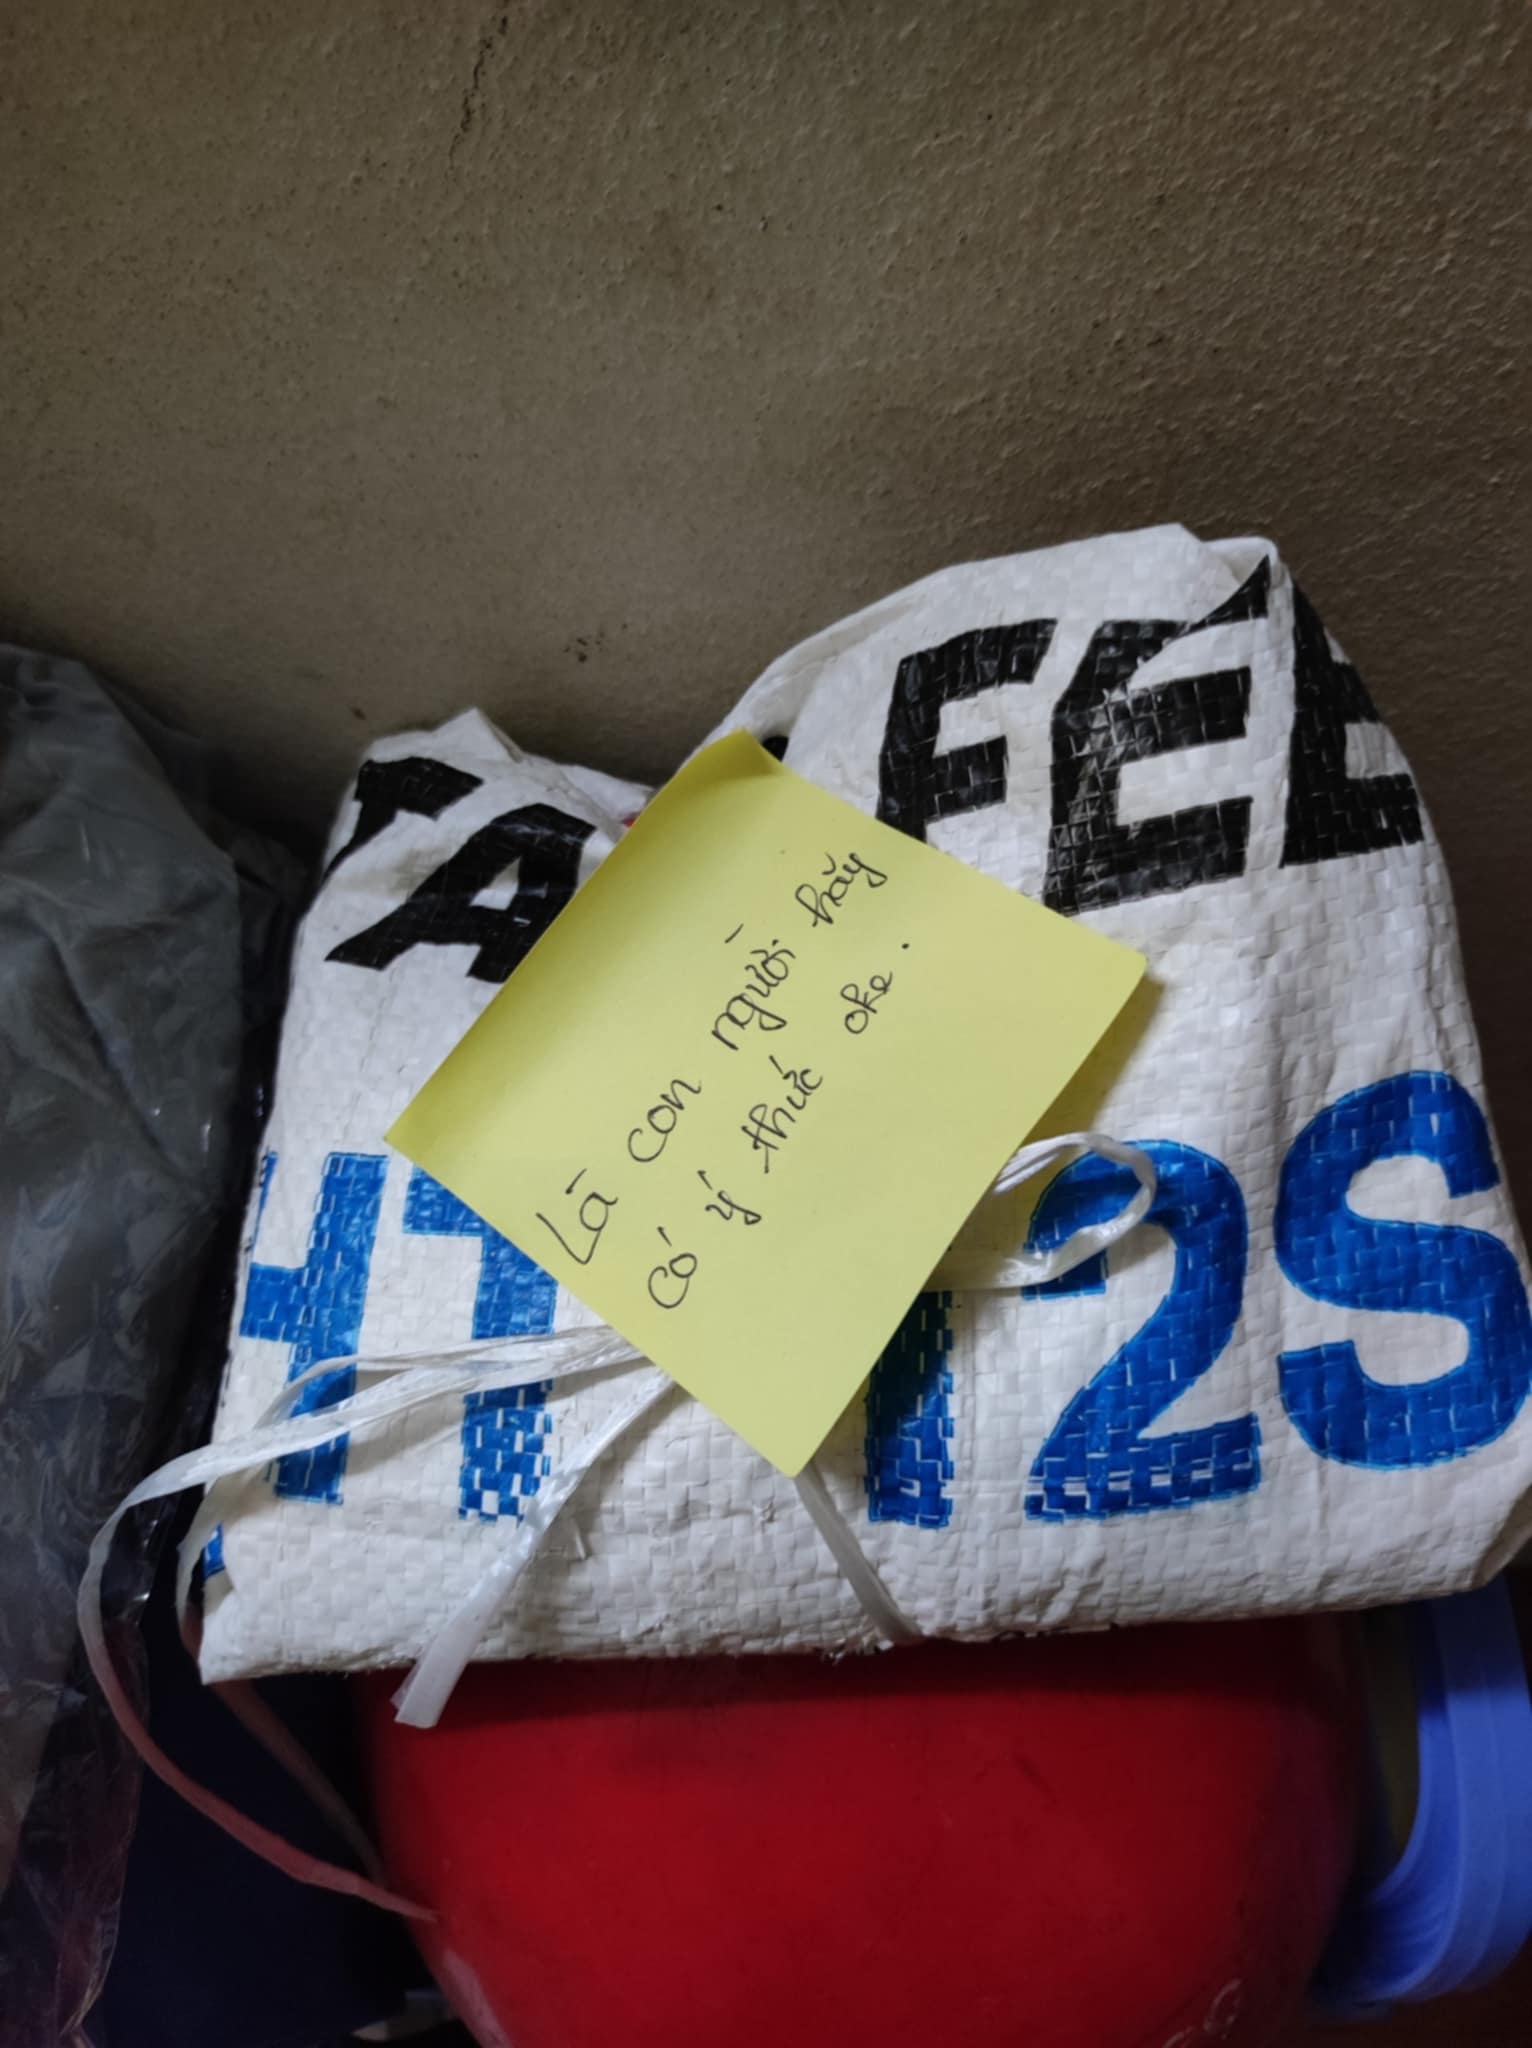 TA FEE
Là con người hãy
có ý thức oke.
HT 12S